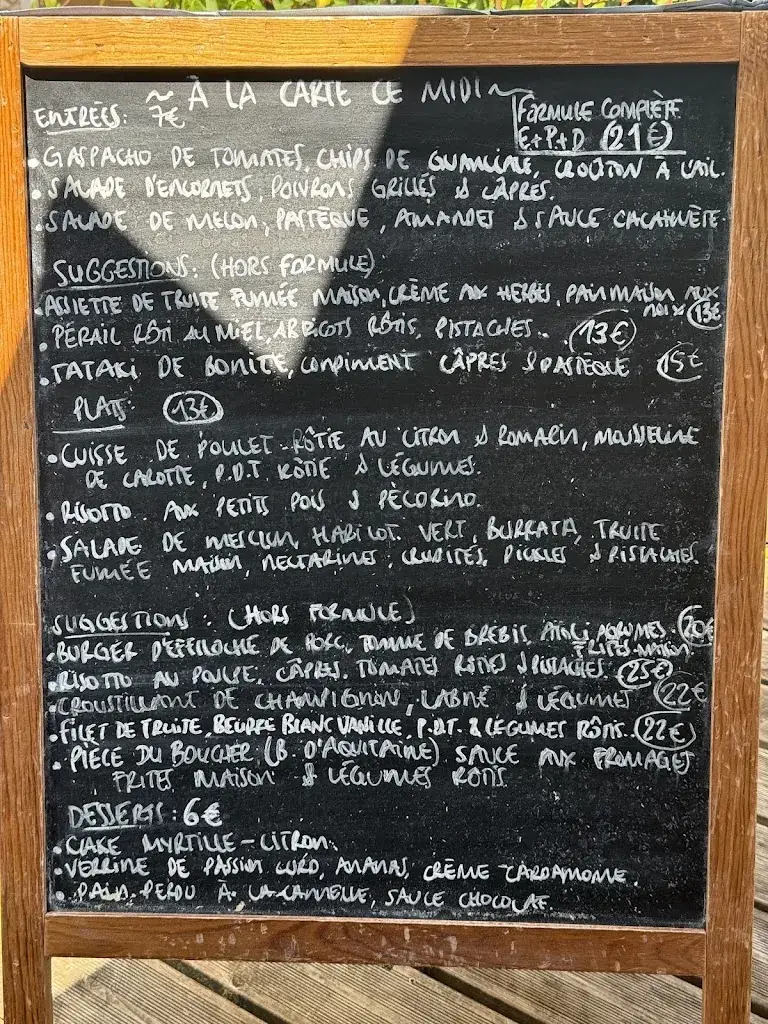 ~ À LA CARTE CE MIDI ~
ENTRÉES: 7€
FORMULE COMPLÈTE
E+P+D (21€)
• GASPACHO DE TOMATES, CHIPS DE GUANCIALE, CROÛTON À L'AIL.
• SALADE D'ENCORNETS, POIVRONS GRILLÉS & CÂPRES.
• SALADE DE MELON, PASTÈQUE, AMANDES & SAUCE CACAHUÈTE.
SUGGESTIONS: (HORS FORMULE)
• ASSIETTE DE TRUITE FUMÉE MAISON, CRÈME AUX HERBES, PAIN MAISON AUX
NOIX 13€
• PÉRAIL RÔTI AU MIEL, ABRICOTS RÔTIS, PISTACHES.. 13€
• TATAKI DE BONITE, CONDIMENT CÂPRES & PASTÈQUE 15€
PLATS: 13€
• CUISSE DE POULET RÔTIE AU CITRON & ROMARIN, MOUSSELINE
DE CAROTTE, P.D.T RÔTIE & LÉGUMES.
• RISOTTO AUX PETITS POIS & PÉCORINO.
• SALADE DE MESCLUN, HARICOT VERT, BURRATA, TRUITE
FUMÉE MAISON, NECTARINES, CRUDITÉS, PICKLES & PISTACHES.
SUGGESTIONS: (HORS FORMULE)
• BURGER D'EFFILOCHÉ DE PORC, TOMME DE BREBIS, AÏOLI AGRUMES. 20€
FRITES MAISON
• RISOTTO AU POULPE, CÂPRES, TOMATES RÔTIES & PISTACHES. 25€
• CROUSTILLANT DE CHAMPIGNON, LABNÉ & LÉGUMES 22€
• FILET DE TRUITE, BEURRE BLANC VANILLE, P.D.T. & LÉGUMES RÔTIS. 22€
• PIÈCE DU BOUCHER (B. D'AQUITAINE) SAUCE AUX FROMAGES
FRITES MAISON & LÉGUMES RÔTIS
DESSERTS: 6€
• CAKE MYRTILLE - CITRON.
• VERRINE DE PASSION CURD, ANANAS, CRÈME CARDAMOME.
• PAIN PERDU À LA CANNELLE, SAUCE CHOCOLAT.